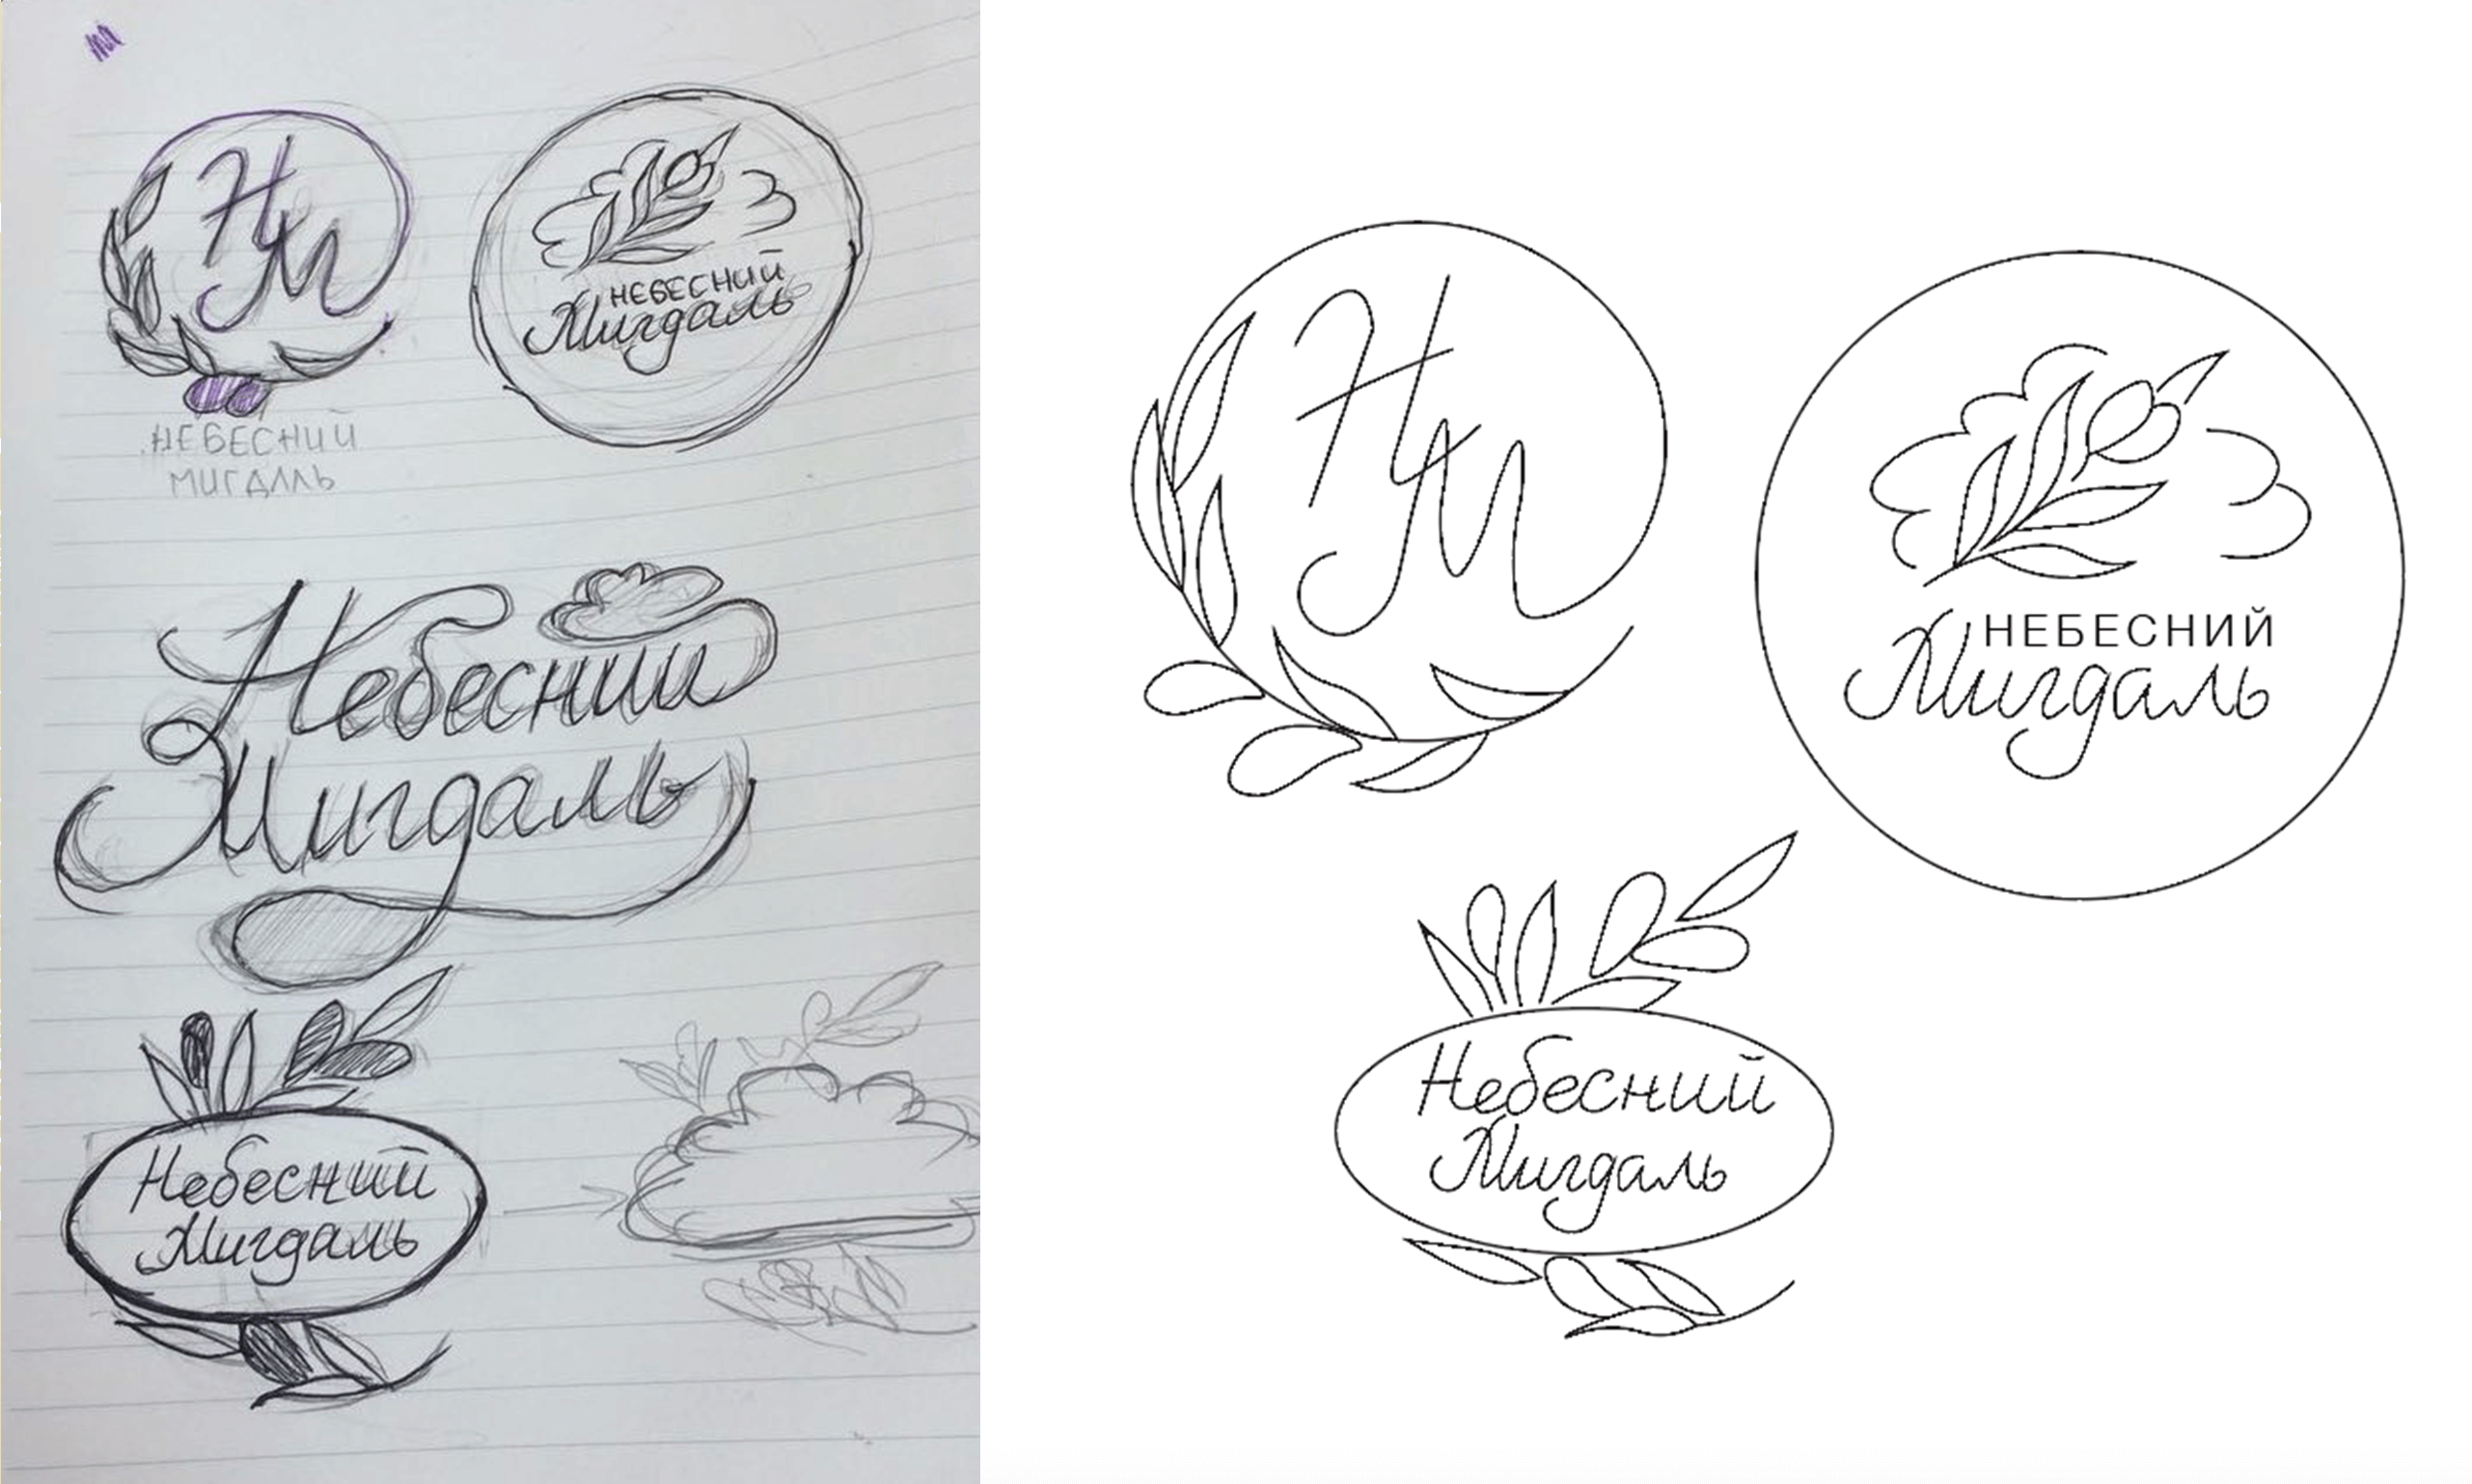 НМ
НЕБЕСНИЙ
МИГДАЛЬ
НЕБЕСНИЙ
Мигдаль
Небесний
Мигдаль
Небесний
Мигдаль
НМ
НЕБЕСНИЙ
Мигдаль
Небесний
Мигдаль